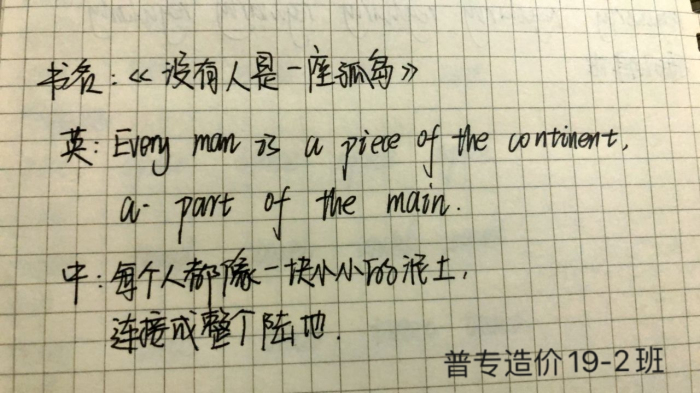 书名：《没有人是一座孤岛》
英：Every man is a piece of the continent,
a part of the main.
中：每个人都像一块小小的泥土，
连接成整个陆地.
普专造价19-2班